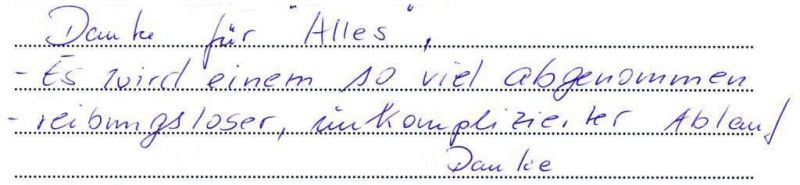 Danke für "Alles",
- Es wird einem so viel abgenommen
- reibungsloser, unkomplizierter Ablauf
Danke